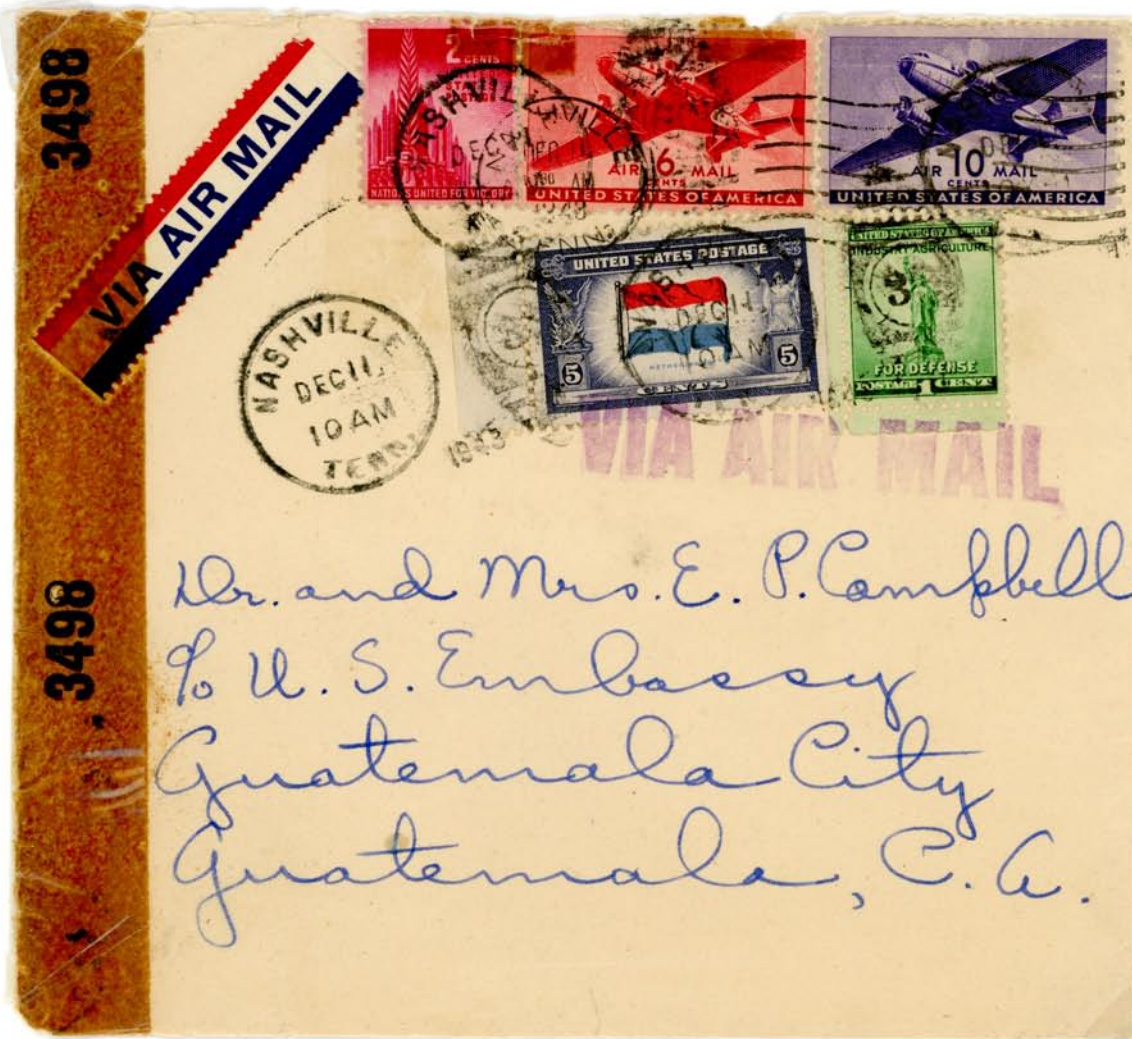 3498
VIA AIR MAIL
2 CENTS
NATIONS UNITED FOR VICTORY
6
AIR MAIL
CENTS
UNITED STATES OF AMERICA
10
AIR MAIL
CENTS
UNITED STATES OF AMERICA
UNITED STATES POSTAGE
5 5
CENTS
UNITED STATES OF AMERICA
INDUSTRY AGRICULTURE
FOR DEFENSE
POSTAGE 1 CENT
NASHVILLE
DEC 11
10 AM
TENN.
1943
NASHVILLE
DEC 11
10 AM
VIA AIR MAIL
3498
Dr. and Mrs. E. P. Campbell
c/o U. S. Embassy
Guatemala City
Guatemala, C. A.